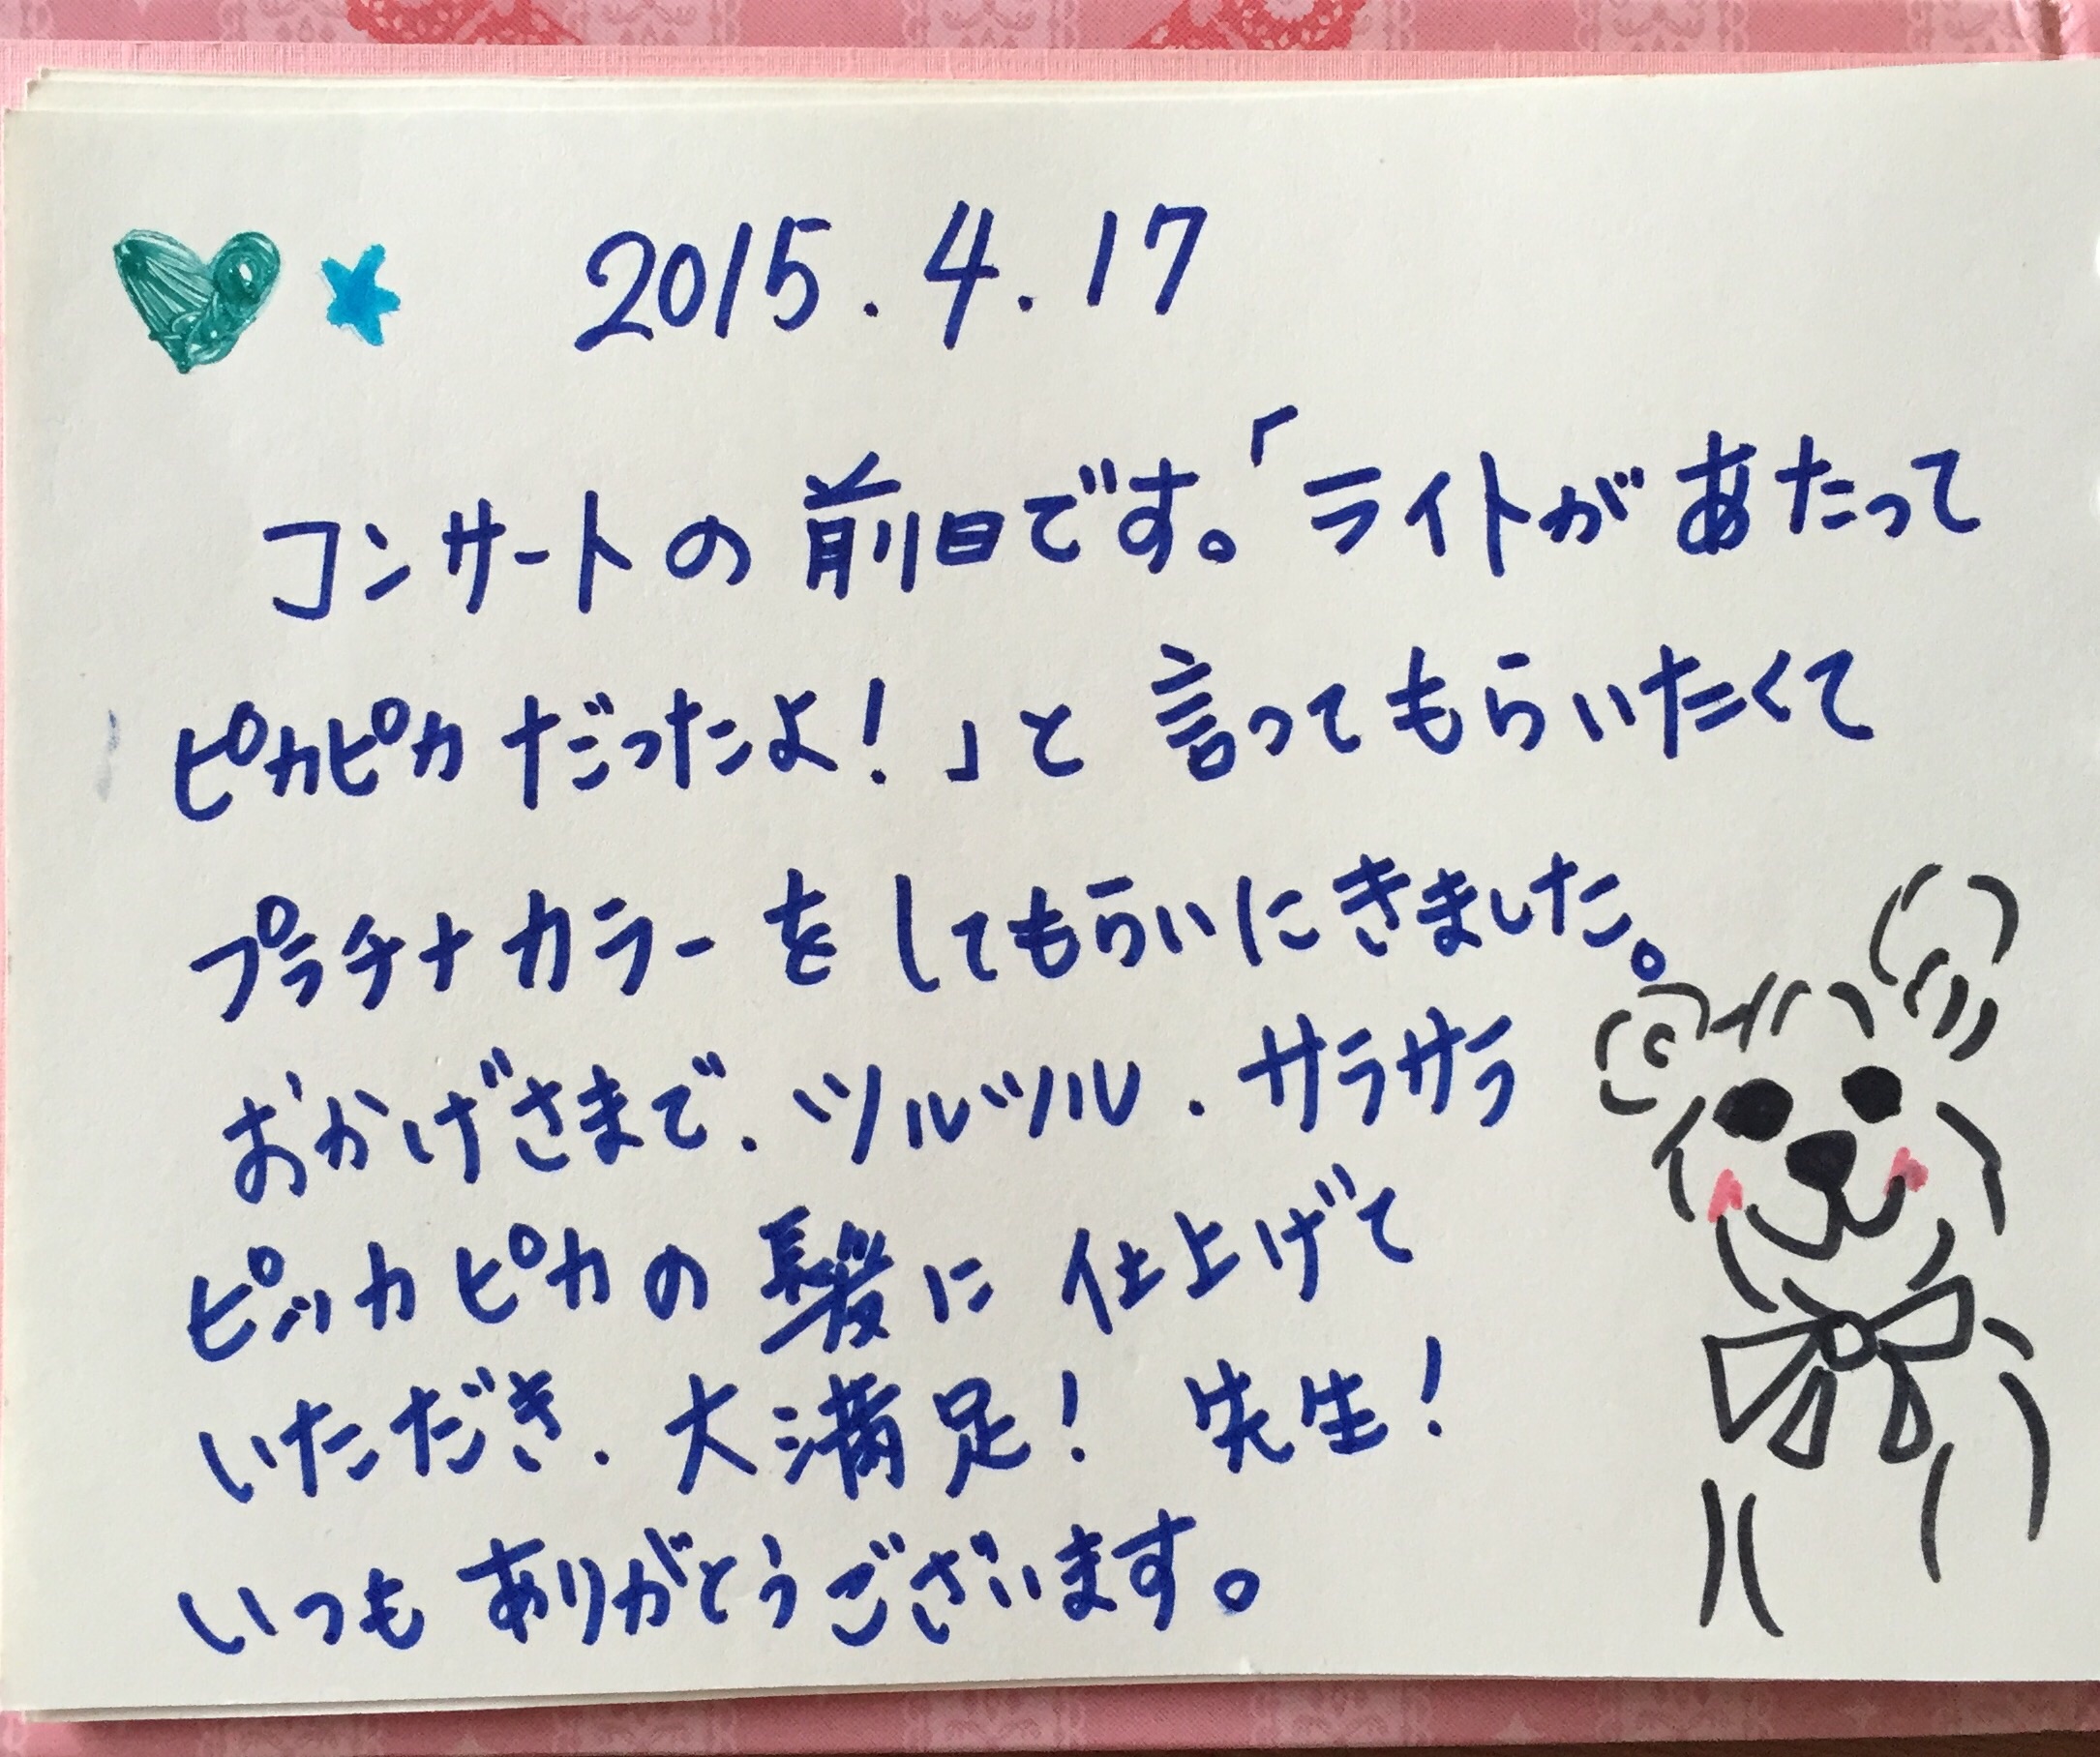 2015.4.17
コンサートの前日です。「ライトがあたって
ピカピカだったよ!」と言ってもらいたくて
プラチナカラーをしてもらいにきました。
おかげさまで、ツルツル、サラサラ
ピッカピカの髪に仕上げて
いただき、大満足! 先生!
いつもありがとうございます。